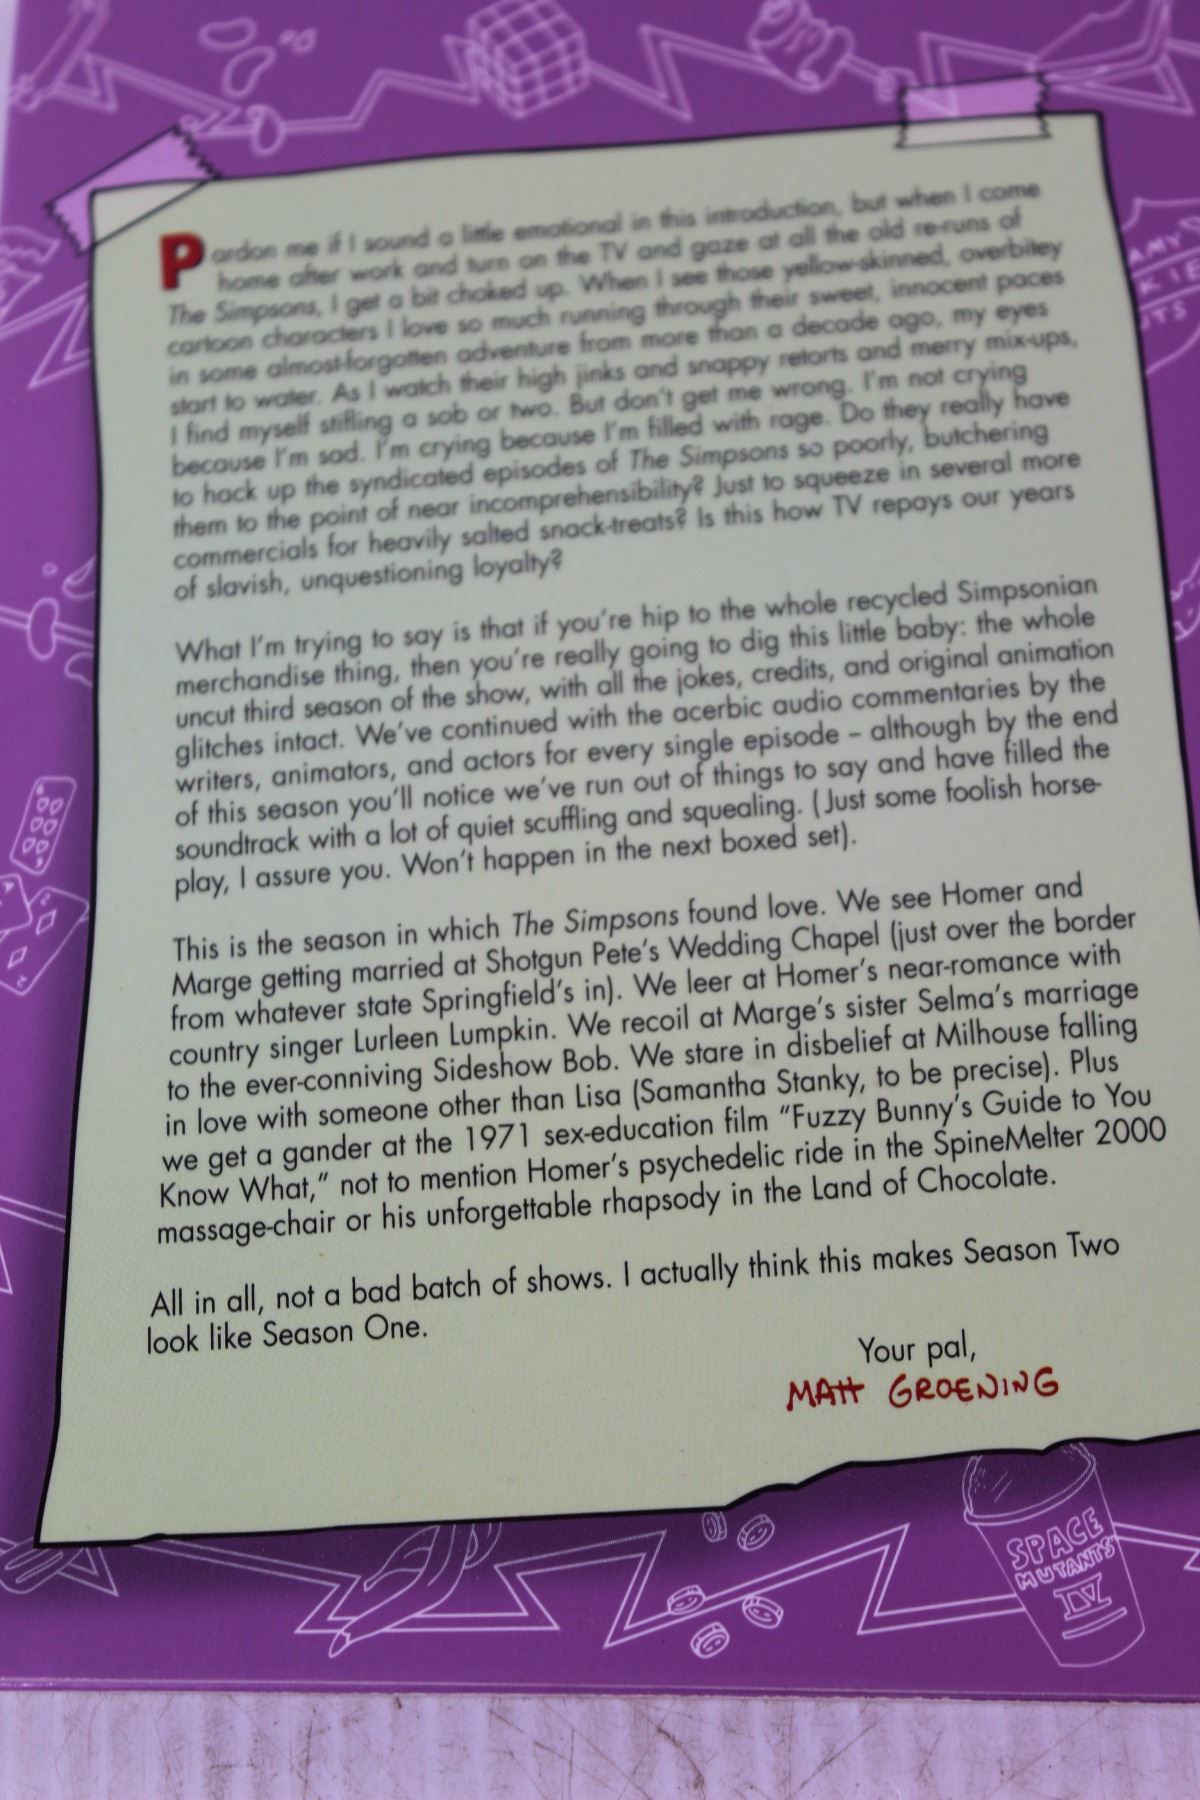 Pardon me if I sound a little emotional in this introduction, but when I come
home after work and turn on the TV and gaze at all the old re-runs of
The Simpsons, I get a bit choked up. When I see those yellow-skinned, overbitey
cartoon characters I love so much running through their sweet, innocent paces
in some almost-forgotten adventure from more than a decade ago, my eyes
start to water. As I watch their high jinks and snappy retorts and merry mix-ups,
I find myself stifling a sob or two. But don't get me wrong. I'm not crying
because I'm sad. I'm crying because I'm filled with rage. Do they really have
to hack up the syndicated episodes of The Simpsons so poorly, butchering
them to the point of near incomprehensibility? Just to squeeze in several more
commercials for heavily salted snack-treats? Is this how TV repays our years
of slavish, unquestioning loyalty?
What I'm trying to say is that if you're hip to the whole recycled Simpsonian
merchandise thing, then you're really going to dig this little baby: the whole
uncut third season of the show, with all the jokes, credits, and original animation
glitches intact. We've continued with the acerbic audio commentaries by the
writers, animators, and actors for every single episode – although by the end
of this season you'll notice we've run out of things to say and have filled the
soundtrack with a lot of quiet scuffling and squealing. (Just some foolish horse-
play, I assure you. Won't happen in the next boxed set).
This is the season in which The Simpsons found love. We see Homer and
Marge getting married at Shotgun Pete's Wedding Chapel (just over the border
from whatever state Springfield's in). We leer at Homer's near-romance with
country singer Lurleen Lumpkin. We recoil at Marge's sister Selma's marriage
to the ever-conniving Sideshow Bob. We stare in disbelief at Milhouse falling
in love with someone other than Lisa (Samantha Stanky, to be precise). Plus
we get a gander at the 1971 sex-education film "Fuzzy Bunny's Guide to You
Know What," not to mention Homer's psychedelic ride in the SpineMelter 2000
massage-chair or his unforgettable rhapsody in the Land of Chocolate.
All in all, not a bad batch of shows. I actually think this makes Season Two
look like Season One.
Your pal,
MATT GROENING
SPACE
MUTANTS
IV